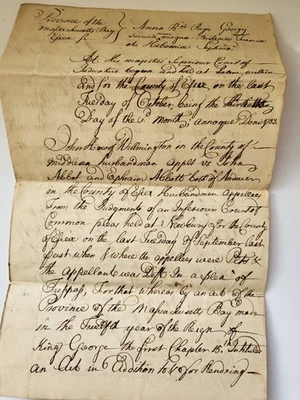 Province of the
Massachusetts Bay
Essex ss
Anno R Rs Regis Georgij
Secundi magnæ Britaniæ Franciæ
et Hiberniæ Septimo
At his majestys Superiour Court of
Judicature begun and held at Salem within
and for the County of Essex on the last
Tuesday of October, being the Thirtieth
Day of the sd month, annoque Domi 1733.
John How of Wilmington in the County of
middlesex husbandman appelt vs John
Abbot and Ephraim Abbott both of Andover
in the County of Essex Husbandmen Appellees
From the Judgments of an Inferiour Court of
Common pleas held at Newbury for the County
of Essex on the last Tuesday of September last
past when & where the appellees were Plts &
the Appellant was Deft In a plea of
Trespass, For that whereas by an act of the
Province of the Massachusetts Bay made
in the Twelfth year of the Reign of
King George the first Chapter 18th Intituled
an Act in Addition to & for Rendring